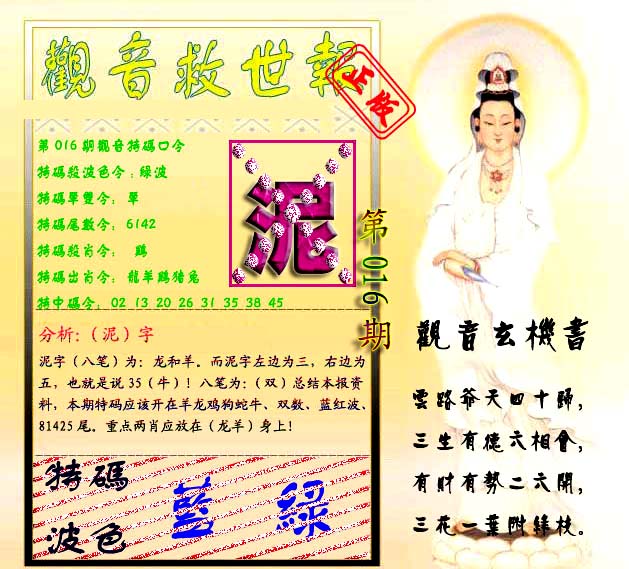 觀音救世報
正版
第016期觀音特碼口令
特碼殺波色令：綠波
特碼單雙令： 單
特碼尾數令： 6142
特碼殺肖令： 鷄
特碼出肖令： 龍羊鷄猪兔
特中碼令： 02 13 20 26 31 35 38 45
泥
第016期
分析：（泥）字
泥字（八笔）为：龙和羊。而泥字左边为三，右边为
五，也就是说 35（牛）！八笔为：（双）总结本报资
料，本期特码应该开在羊龙鸡狗蛇牛、双数、蓝红波、
81425 尾。重点两肖应放在（龙羊）身上！
特碼
波色
藍 綠
觀音玄機書
雲路爺天四十歸，
三生有德六相會，
有財有勢二六開，
三花一葉附綠枝。